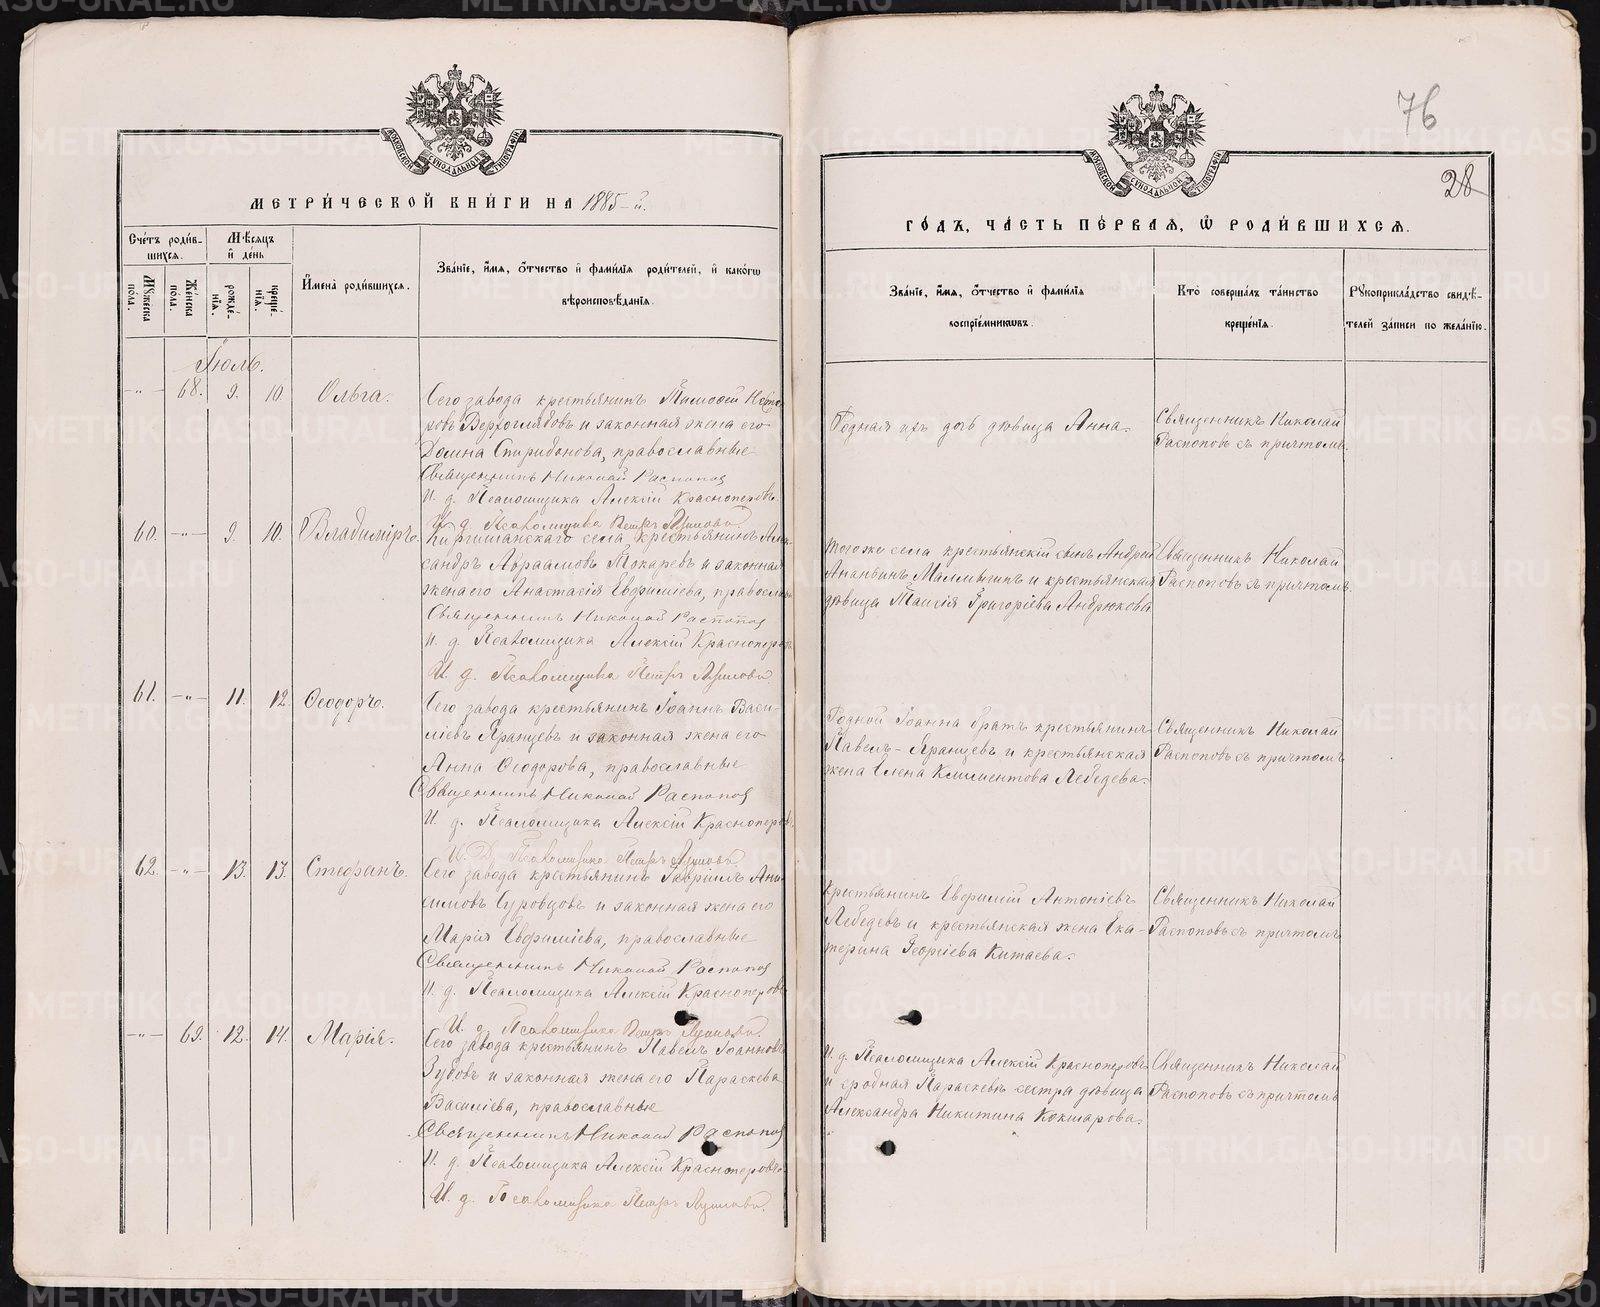 МЕТРИ́ЧЕСКОЙ КНИ́ГИ НА 1885-й.
Сче́тъ роди́в-
шихся.
Мѣсяцъ
й де́нь
Мꙋ́жеска
по́ла.
Же́нска
по́ла.
рожде́-
нїя.
креще́-
нїя.
Имена̀ роди́вшихся.
Зва́нїе, и́мя, ѻ́тчество и҆ фами́лїя роди́телей, и҆ како́гѡ
вѣроисповѣ́данїя.
Іюль.
-"- 68. 9. 10. Ольга.
Сего завода крестьянинъ Тимоѳей Несте-
ровъ Верхоглядовъ и законная жена его
Домна Спиридонова, православные
Священникъ Николай Распопов
И. д. Псаломщика Алексій Красноперовъ
И. д. Псаломщика Петръ
60. -"- 9. 10. Владиміръ.
Киргишанскаго села крестьянинъ Алек-
сандръ Абраамовъ Токаревъ и законная
жена его Анастасія Евфиміева, православн
Священникъ Николай Распопов
И. д. Псаломщика Алексій Красноперовъ
И. д. Псаломщика Петръ
61. -"- 11. 12. Ѳеодоръ.
Сего завода крестьянинъ Іоаннъ Васи-
ліевъ Яранцевъ и законная жена его
Анна Ѳеодорова, православные
Священникъ Николай Распопов
И. д. Псаломщика Алексій Красноперовъ
И. Д. Псаломщика Петръ
62. -"- 13. 13. Стефанъ.
Сего завода крестьянинъ Гавріилъ Ани-
симовъ Суровцовъ и законная жена его
Марія Евфиміева, православные
Священникъ Николай Распопов
И. д. Псаломщика Алексій Красноперовъ
И. д. Псаломщика Петръ
-"- 69. 12. 14. Марія.
Сего завода крестьянинъ Павелъ Іоанновъ
Зубовъ и законная жена его Параскева
Василіева, православные
Священникъ Николай Распопов
И. д. Псаломщика Алексій Красноперовъ
И. д. Псаломщика Петръ
76
28
ГО́ДЪ, ЧА́СТЬ ПЕ́РВАЯ, Ѡ҆ РОДИ́ВШИХСЯ.
Зва́нїе, и́мя, ѻ́тчество и҆ фами́лїя
воспрїе́мникѡвъ.
Кто̀ соверша́лъ та́инство
креще́нїя.
Рꙋкоприкла́дство свидѣ́-
телей за́писи по жела́нїю.
Родная ихъ дочь дѣвица Анна.
Священникъ Николай
Распоповъ съ причтомъ.
Того же села крестьянскій сынъ Андрей
Ананьинъ Маллыгинъ и крестьянская
дѣвица Таисія Григоріева Андрюкова
Священникъ Николай
Распоповъ съ причтомъ.
Родной Іоанна братъ крестьянинъ
Павелъ - Яранцевъ и крестьянская
жена Елена Климентова Лебедева.
Священникъ Николай
Распоповъ съ причтомъ
Крестьянинъ Евфимій Антоніевъ
Лебедевъ и крестьянская жена Ека-
терина Георгіева Китаева.
Священникъ Николай
Распоповъ съ причтомъ
И. д. Псаломщика Алексій Красноперовъ
и сродная Параскевѣ сестра дѣвица
Александра Никитина Кокшарова.
Священникъ Николай
Распоповъ съ причтомъ